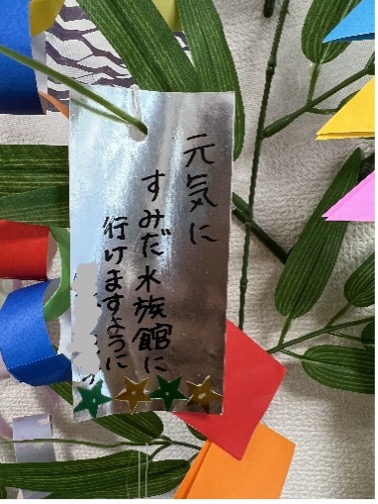 元気に
すみだ水族館に
行けますように